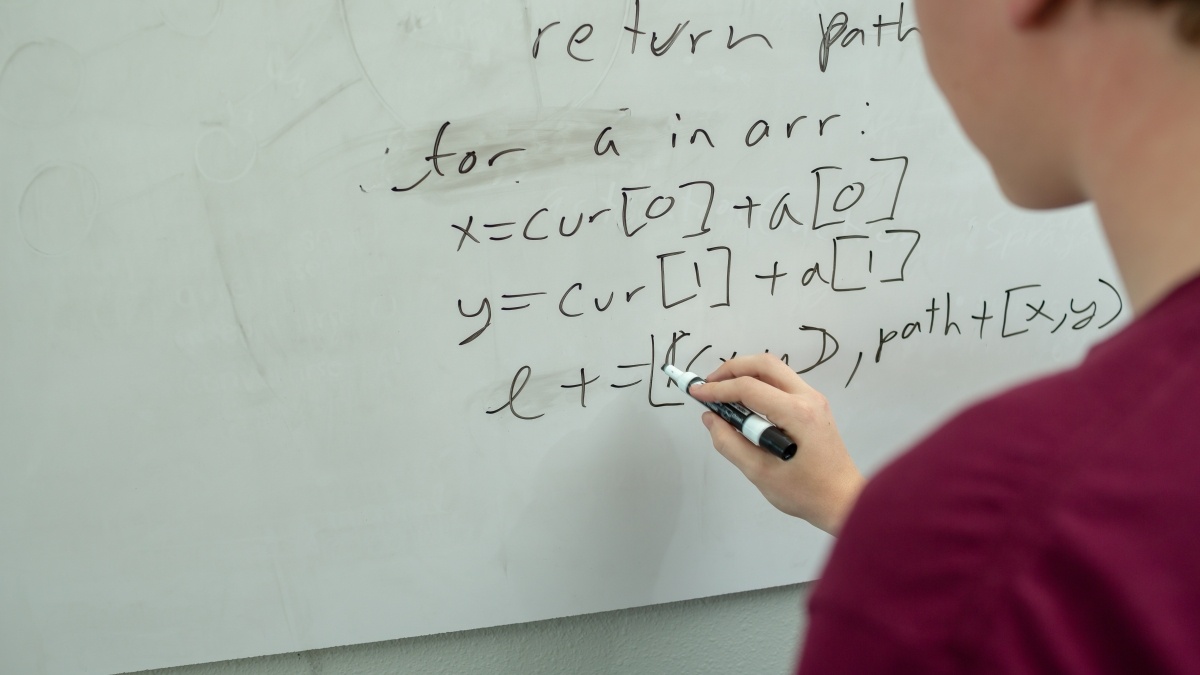 return path
for a in arr:
x=cur[0]+a[0]
y=cur[1]+a[1]
l +=[ , path+[x,y)